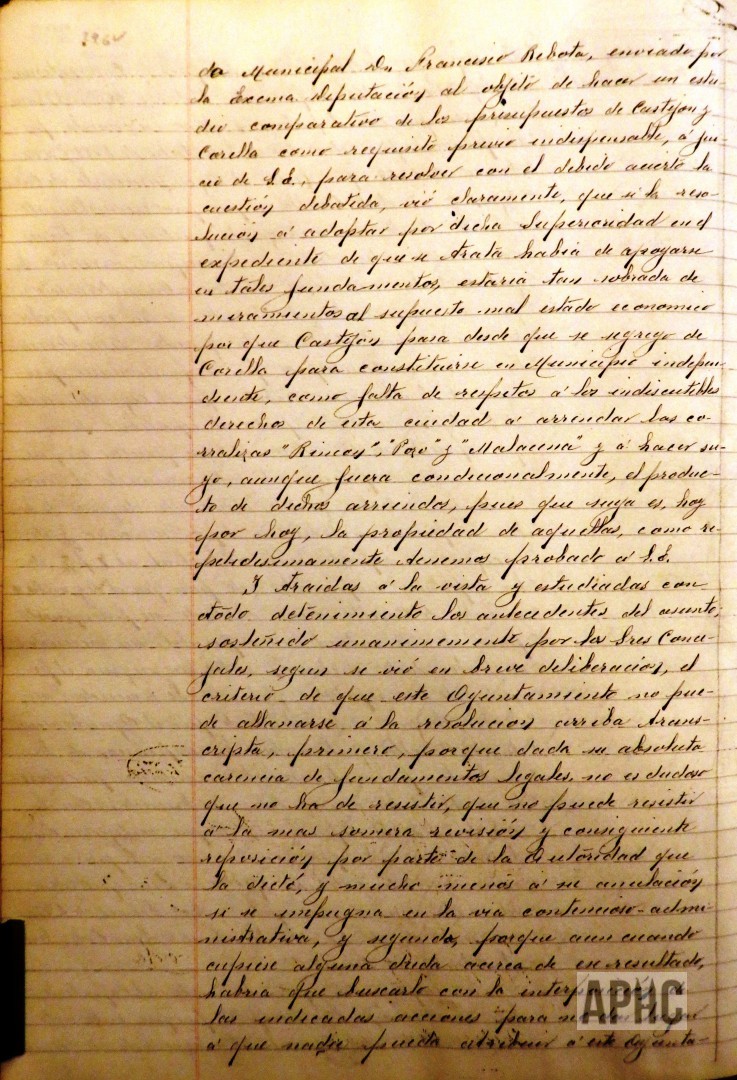 do Municipal Dn Francisco Rebota, enviado por
la Excma Diputación al objeto de hacer un estu-
dio comparativo de los presupuestos de Castejon y
Corella como requisito previo indispensable, á jui-
cio de S.E., para resolver con el debido acierto la
cuestión debatida, vió claramente, que si la reso-
lucion á adoptar por dicha Superioridad en el
expediente de que se trata habia de apoyarse
en tales fundamentos, estaria tan sobrada de
miramientos al supuesto mal estado economico
por que Castejón pasa desde que se segregó de
Corella para constituirse en Municipio indepen-
diente, como falta de respetos á los indiscutibles
derechos de esta ciudad á arrendar las co-
rralizas "Rincon", "Pozo" y "Malacena" y á hacer su-
yo, aunque fuera condicionalmente, el produc-
to de dichos arriendos, pues que suya es, hoy
por hoy, la propiedad de aquellas, como re-
petidisimamente tenemos probado á S.E.
Y traidas á la vista y estudiadas con
todo detenimiento los antecedentes del asunto,
sostenido unanimemente por los Sres Conce-
jales, segun se vió en breve deliberacion, el
criterio de que este Ayuntamiento no pue-
de allanarse á la resolucion arriba trans-
cripta, primero, porque dada su absoluta
carencia de fundamentos legales, no es dudoso
que no ha de resistir, que no puede resistir
á la mas somera revisión y consiguiente
reposición por parte de la Autoridad que
la dictó, y mucho menos á su anulación
si se impugna en la via contencioso-admi-
nistrativa, y segundo, porque aun cuando
cupiese alguna duda acerca de su resultado,
habria que buscarlo con la de
las indicadas acciones para no dar lugar
á que nadie pueda atribuir á este Ayunta-
APHC